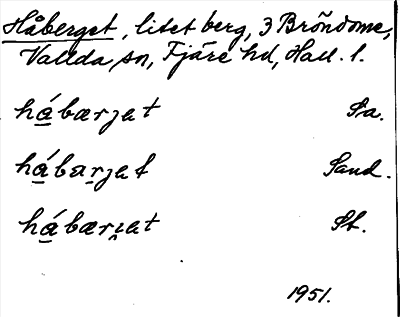 Håberget, litet berg, 3 Bröndome,
Vallda sn, Fjäre hd, Hall. l.
há̱bærjat Sa.
há̱bærjat Sand.
há̱bærı̯at St.
1951.